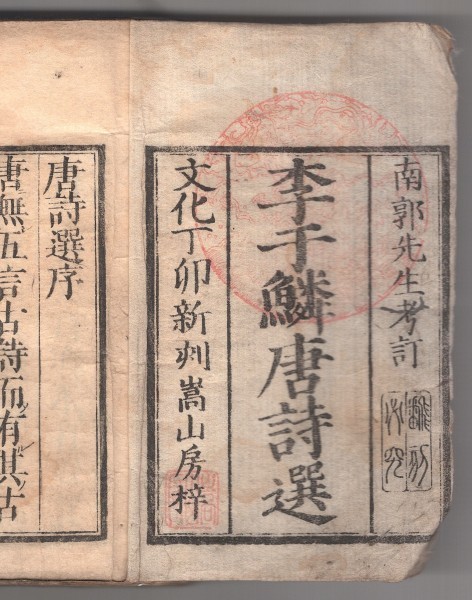 南郭先生考訂
翻刻
必究
李于鱗唐詩選
文化丁卯新刻嵩山房梓
唐詩選序
唐無五言古詩而有其古